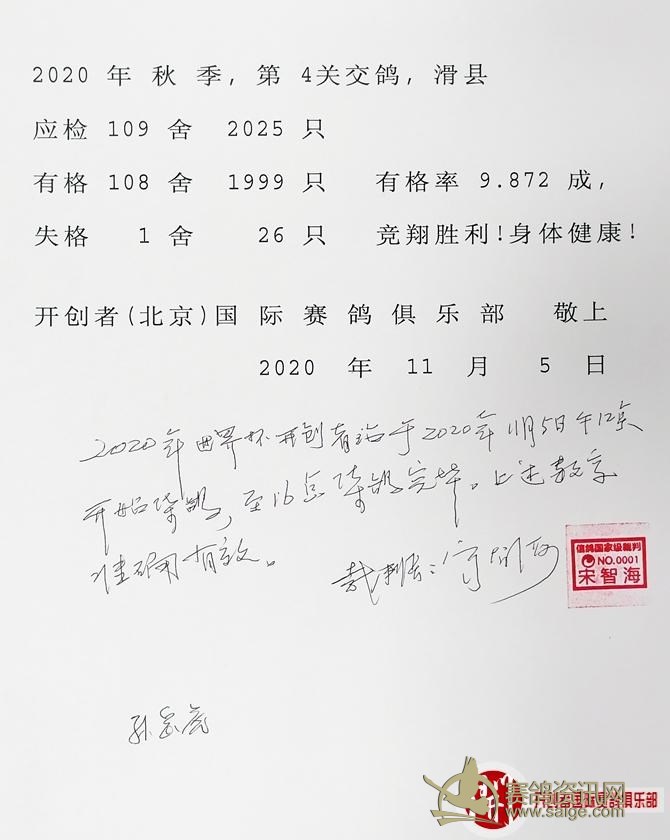 2020 年 秋 季, 第 4关交鸽, 滑县
应检 109 舍 2025 只
有格 108 舍 1999 只 有格率 9.872 成,
失格 1 舍 26 只 竞翔胜利!身体健康!
开创者(北京)国 际 赛 鸽 俱 乐 部 敬上
2020 年 11 月 5 日
2020年世界杯开创者站于2020年11月5日午12点
开始集鸽,至16点集鸽完毕。上述数字
准确有效。
裁判长:宋智海
信鸽国家级裁判
NO.0001
宋智海
赛鸽资讯网
www.saige.com
开创者国际赛鸽俱乐部